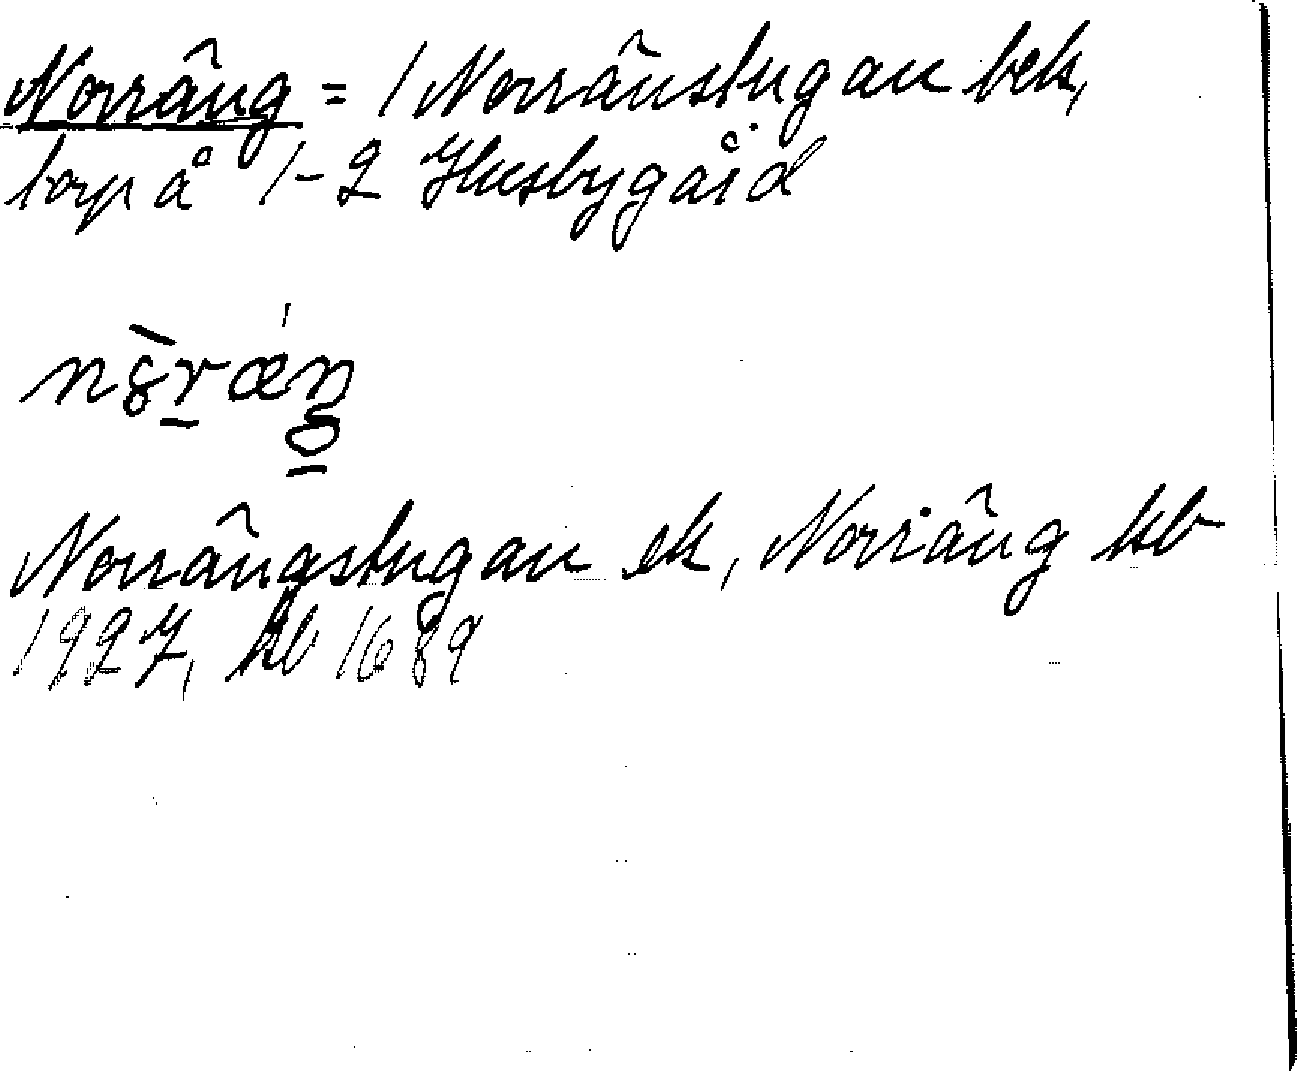 Norräng = 1 Norränstugan bek,
torp å 1-2 Husbygård
Norrängstugan ek, Norräng kb
1927, kb 1689